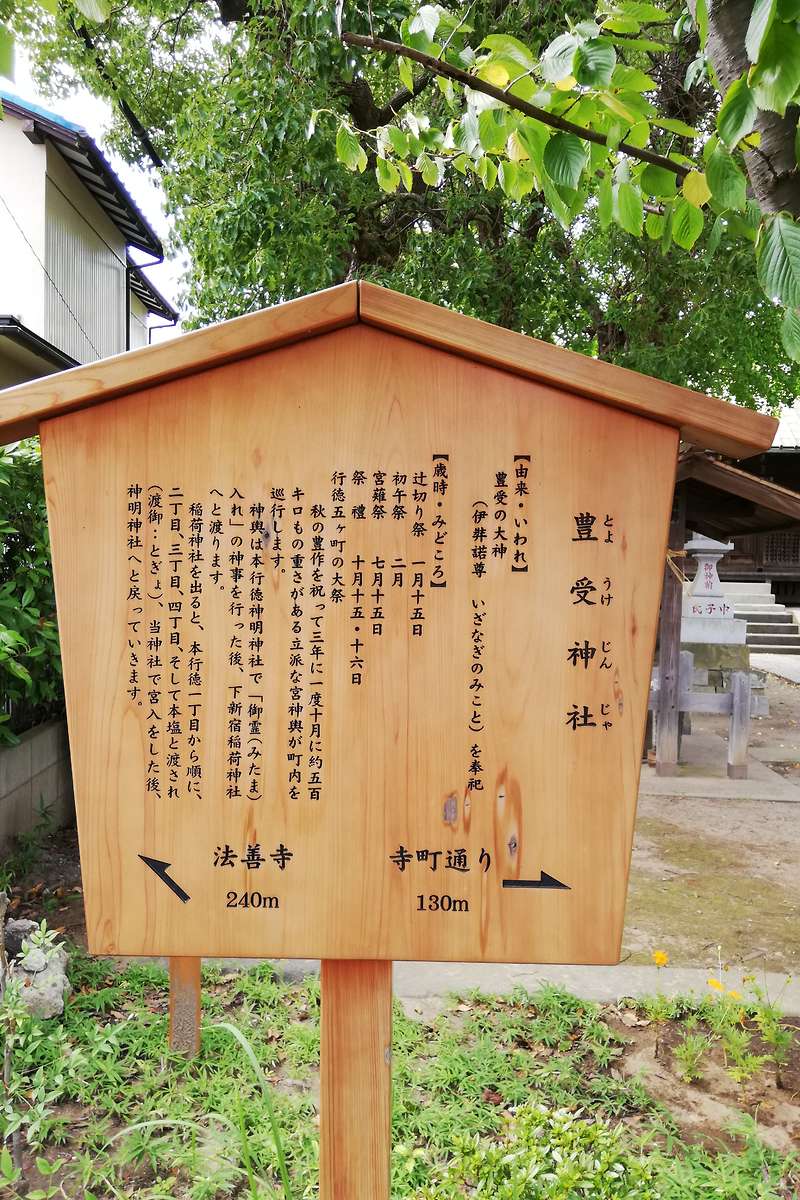 豊受神社
とようけじんじゃ
【由来・いわれ】
豊受の大神
（伊弉諾尊　いざなぎのみこと）を奉祀
【歳時・みどころ】
辻切り祭　一月十五日
初午祭　二月
宮薙祭　七月十五日
祭禮　十月十五・十六日
行徳五ヶ町の大祭
秋の豊作を祝って三年に一度十月に約五百
キロもの重さがある立派な宮神輿が町内を
巡行します。
神輿は本行徳神明神社で「御霊（みたま）
入れ」の神事を行った後、下新宿稲荷神社
へと渡ります。
稲荷神社を出ると、本行徳一丁目から順に、
二丁目、三丁目、四丁目、そして本塩と渡され
（渡御：とぎょ）、当神社で宮入をした後、
神明神社へと戻っていきます。
寺町通り
130m
法善寺
240m
御神前
氏子中